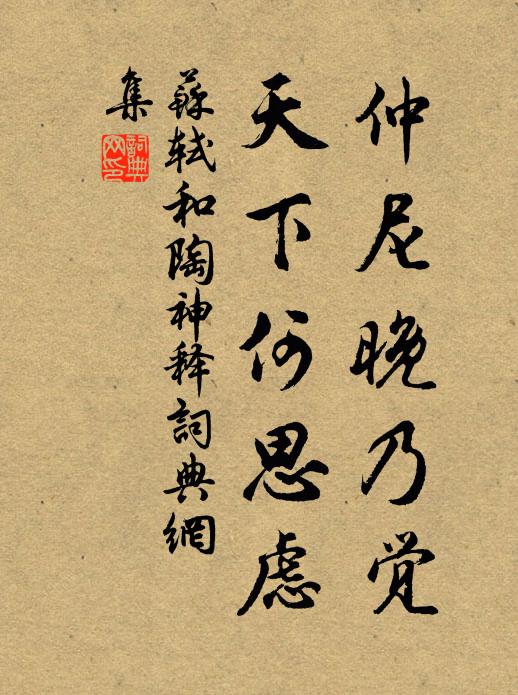 仲尼晚乃觉
天下何思虑
蘇軾和陶神释詞典網
集
詞典網印